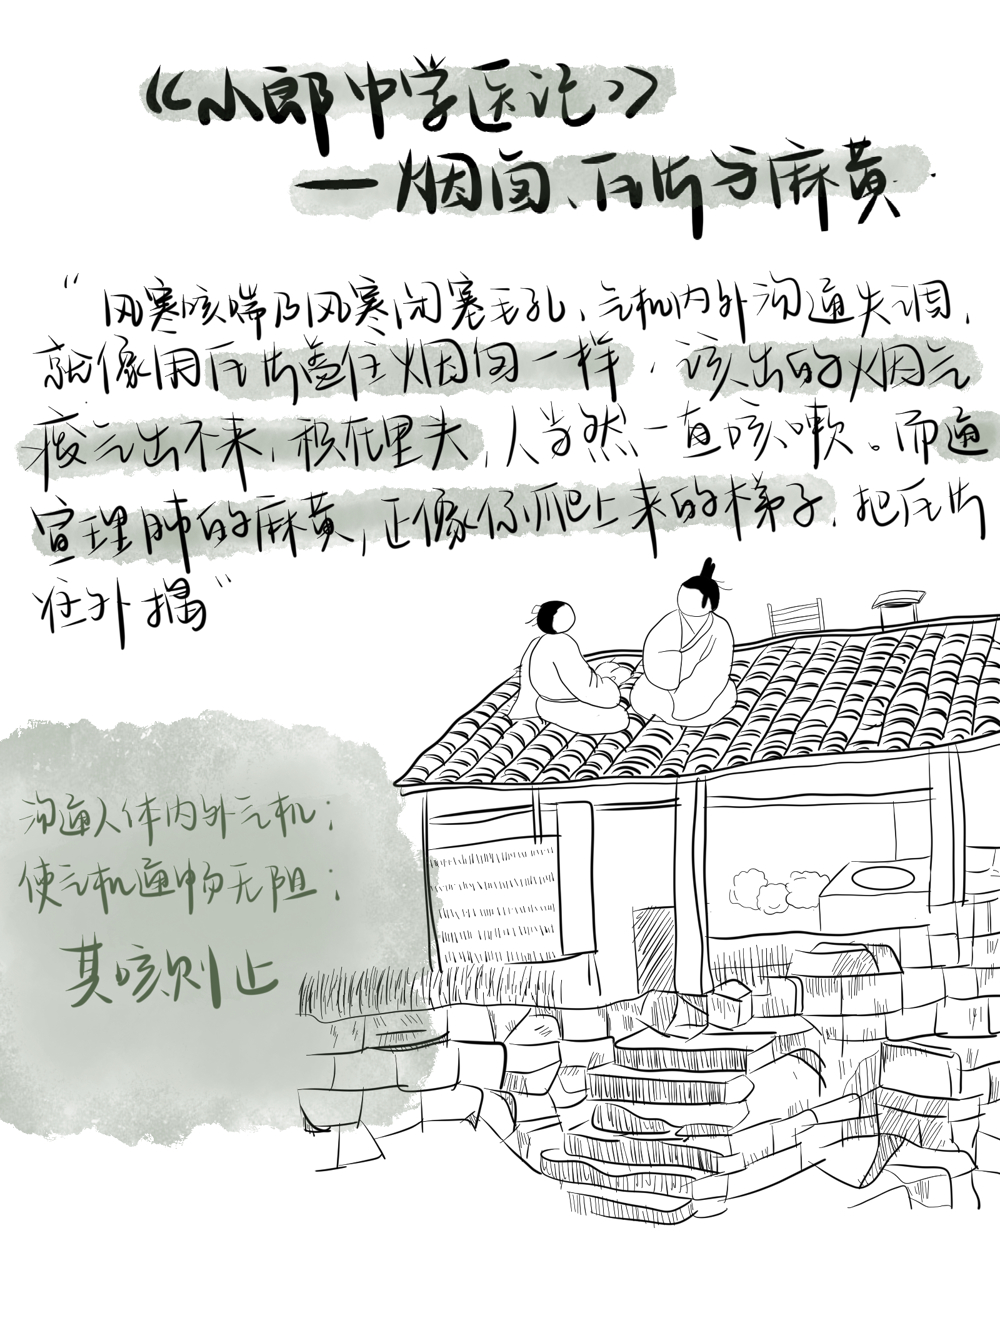 《小郎中学医记》
—烟囱、瓦片与麻黄
“风寒咳喘乃风寒闭塞毛孔,气机内外沟通失调,
就像用瓦片盖住烟囱一样,该出的烟气
废气出不来,积在里头,人当然一直咳嗽。而通
宣理肺的麻黄,正像你爬上来的梯子,把瓦片
往外揭”
沟通人体内外气机;
使气机通畅无阻;
其咳则止